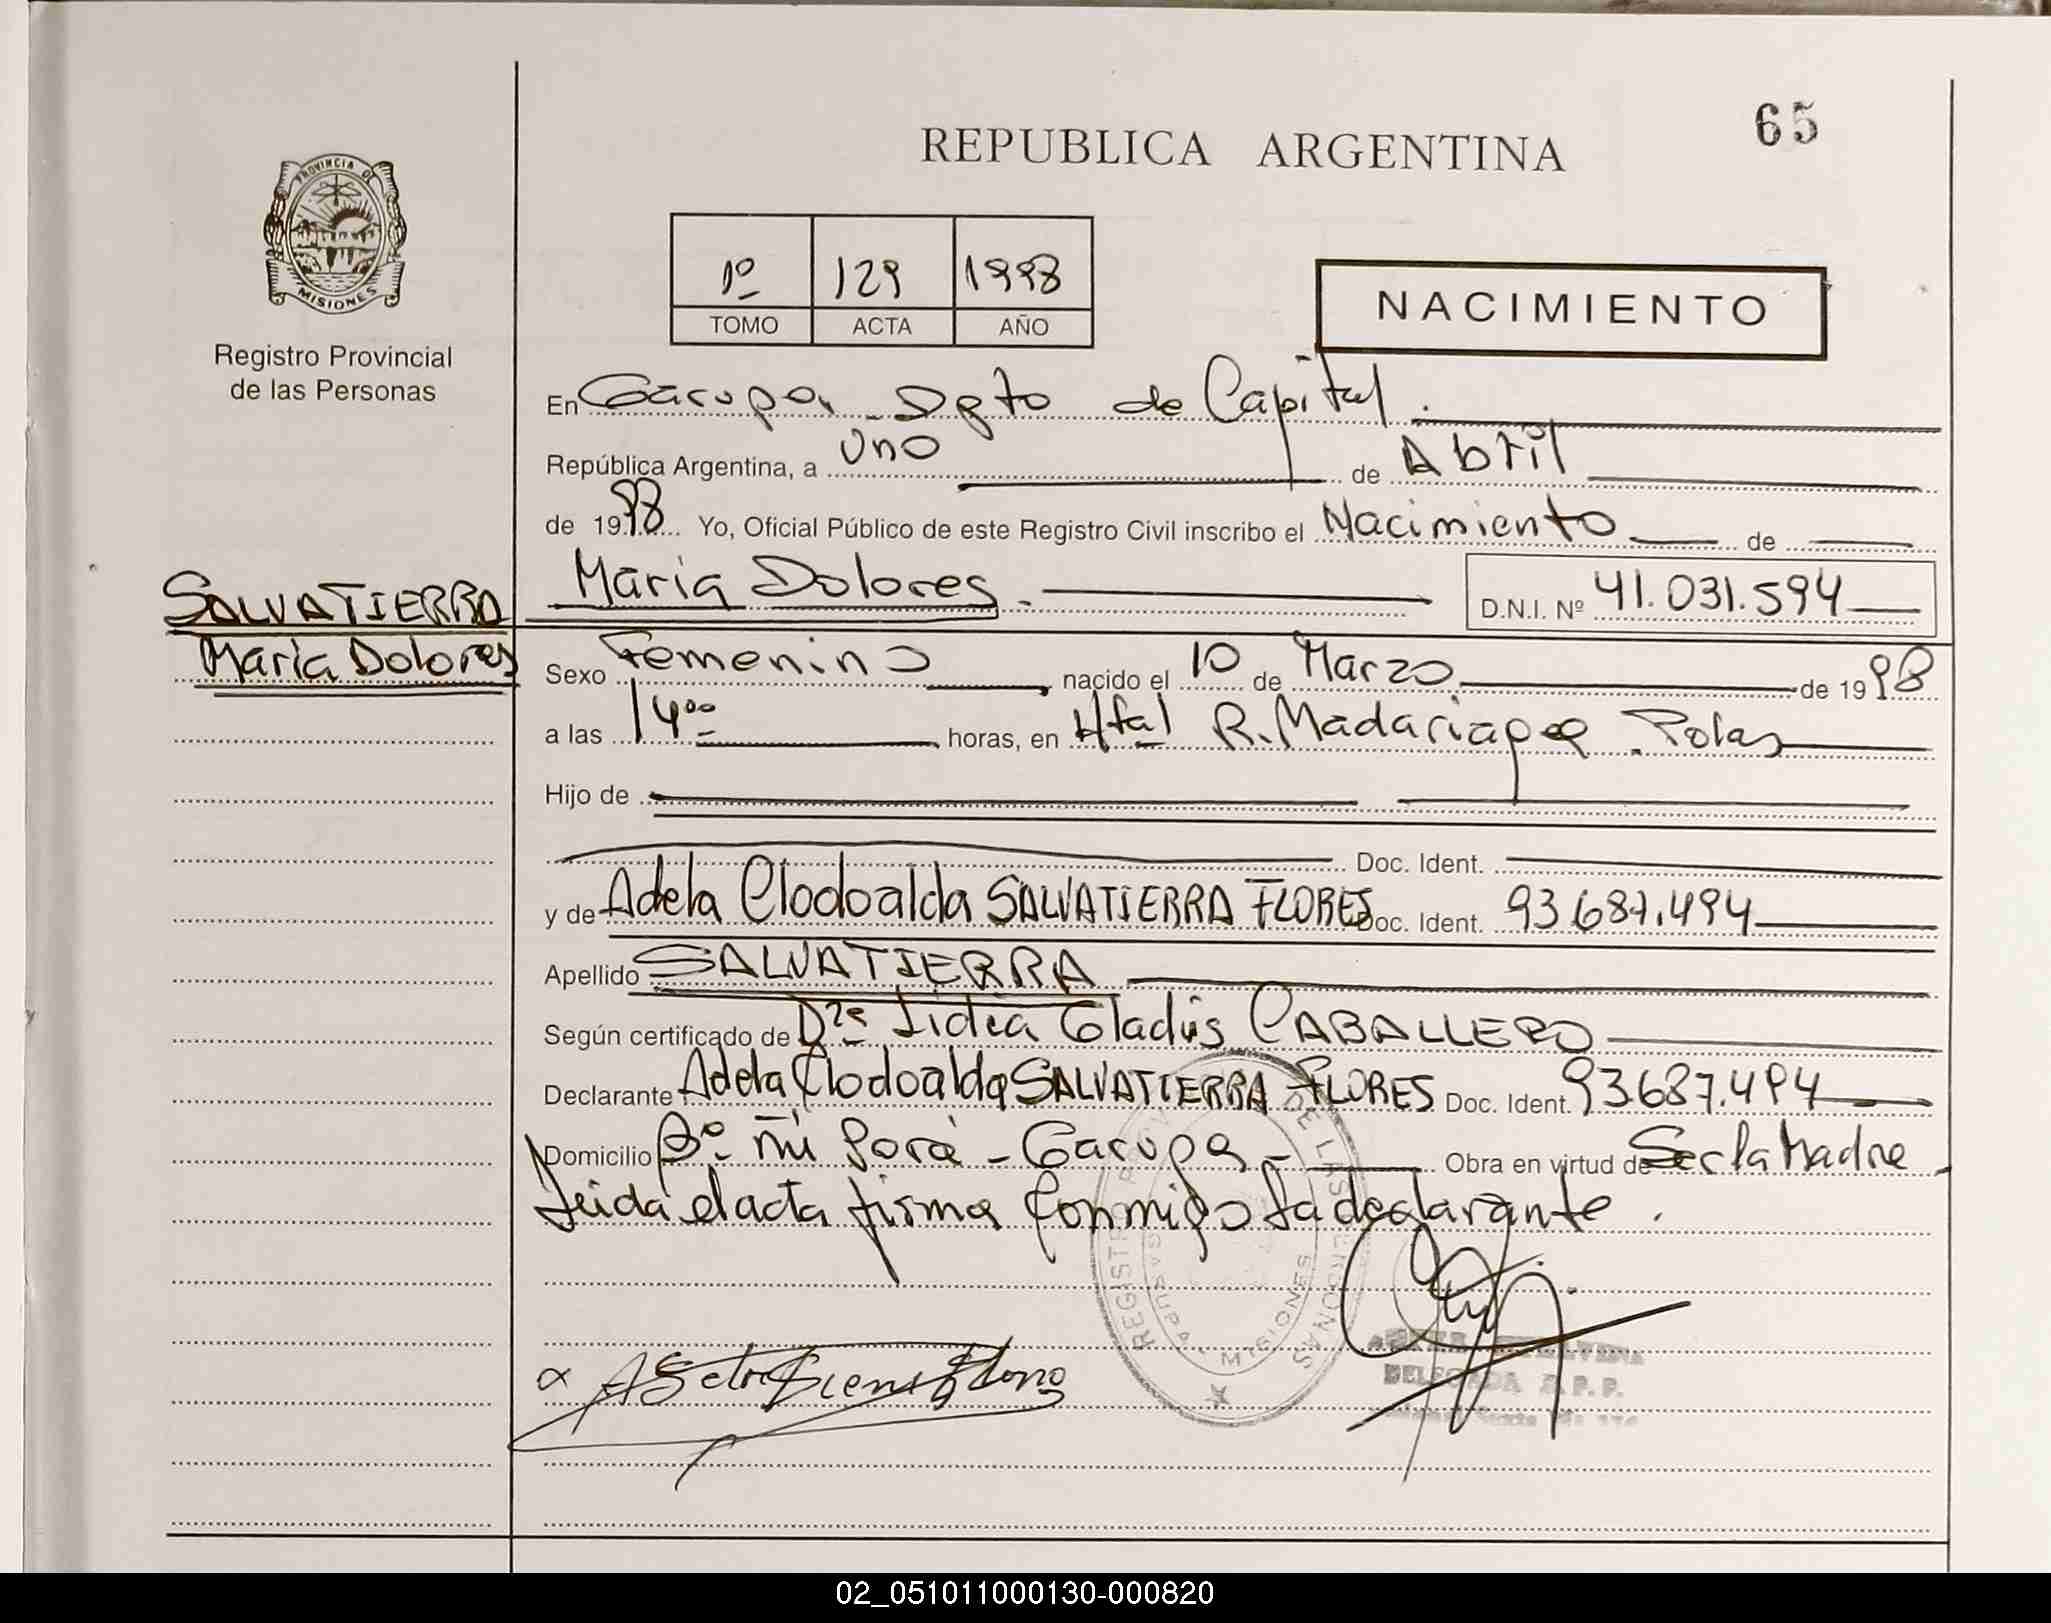 65
REPUBLICA ARGENTINA
PROVINCIA DE
MISIONES
Registro Provincial
de las Personas
1º 129 1998
TOMO ACTA AÑO
NACIMIENTO
En Garupa, Dpto de Capital.
República Argentina, a uno de Abril
de 1998 Yo, Oficial Público de este Registro Civil inscribo el Nacimiento de
Maria Dolores. D.N.I. Nº 41.031.594
SALVATIERRA
Maria Dolores
Sexo Femenino nacido el 10 de Marzo de 1998
a las 14ºº horas, en Htal R. Madariaga
Hijo de
Doc. Ident.
y de Adela Clodoalda SALVATIERRA FLORES Doc. Ident. 93.687.494
Apellido SALVATIERRA
Según certificado de Dra Lidia Gladis CABALLERO
Declarante Adela Clodoalda SALVATIERRA FLORES Doc. Ident. 93687.494
Domicilio Bº Ñu Porá - Garupa - Obra en virtud de Ser la Madre
Leida el acta firma conmigo la declarante.
REGISTRO PROV. DE LAS PERSONAS
MISIONES
DELEGADA R.P.P.
02_051011000130-000820